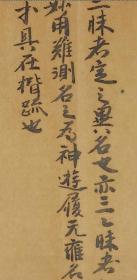 三昧者定之異名也亦三之昧者
妙用難測名之為神遊履无雍名
亦具在楷疏也